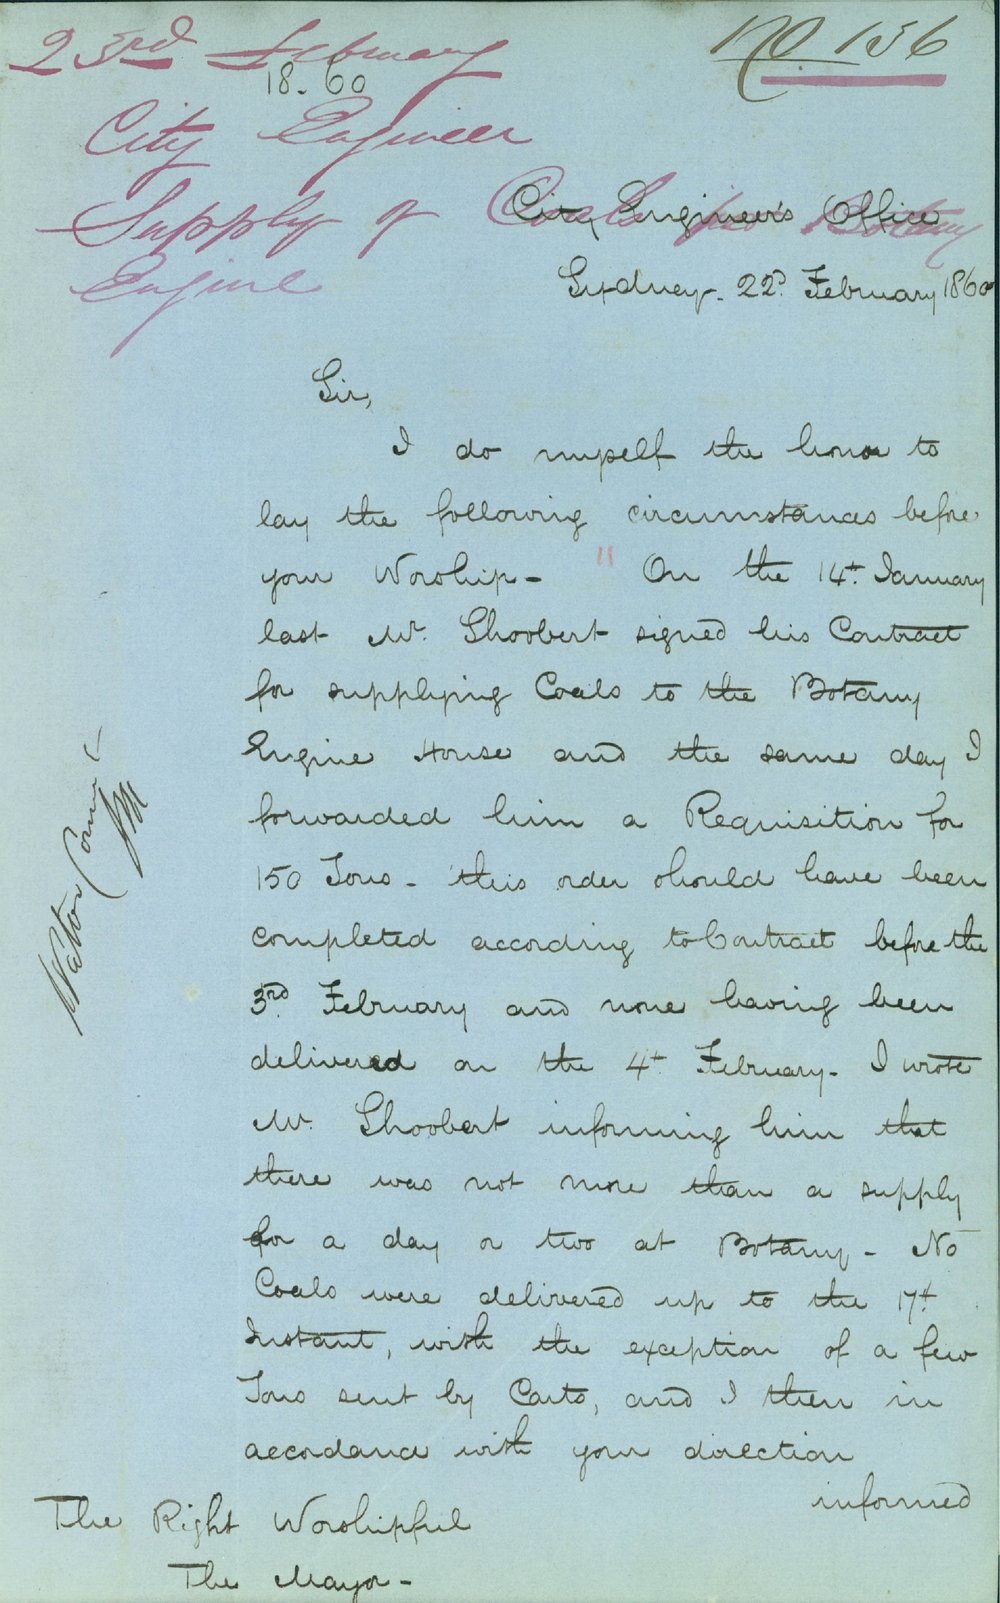 No. 156
23rd February
18.60
City Engineer
Supply of Coals for Botany
Engine
City Engineer's Office
Sydney. 22d. February 1860
Sir,
I do myself the honor to
lay the following circumstances before
your Worship - " On the 14th. January
last Mr. Shoobert signed his Contract
for supplying Coals to the Botany
Engine House and the same day I
forwarded him a Requisition for
150 Tons - this order should have been
completed according to Contract before the
3rd. February and none having been
delivered on the 4th February - I wrote
Mr. Shoobert informing him that
there was not more than a supply
for a day or two at Botany - No
Coals were delivered up to the 17th
Instant, with the exception of a few
Tons sent by Carts, and I then in
accordance with your direction
informed
The Right Worshipful
The Mayor -
Water